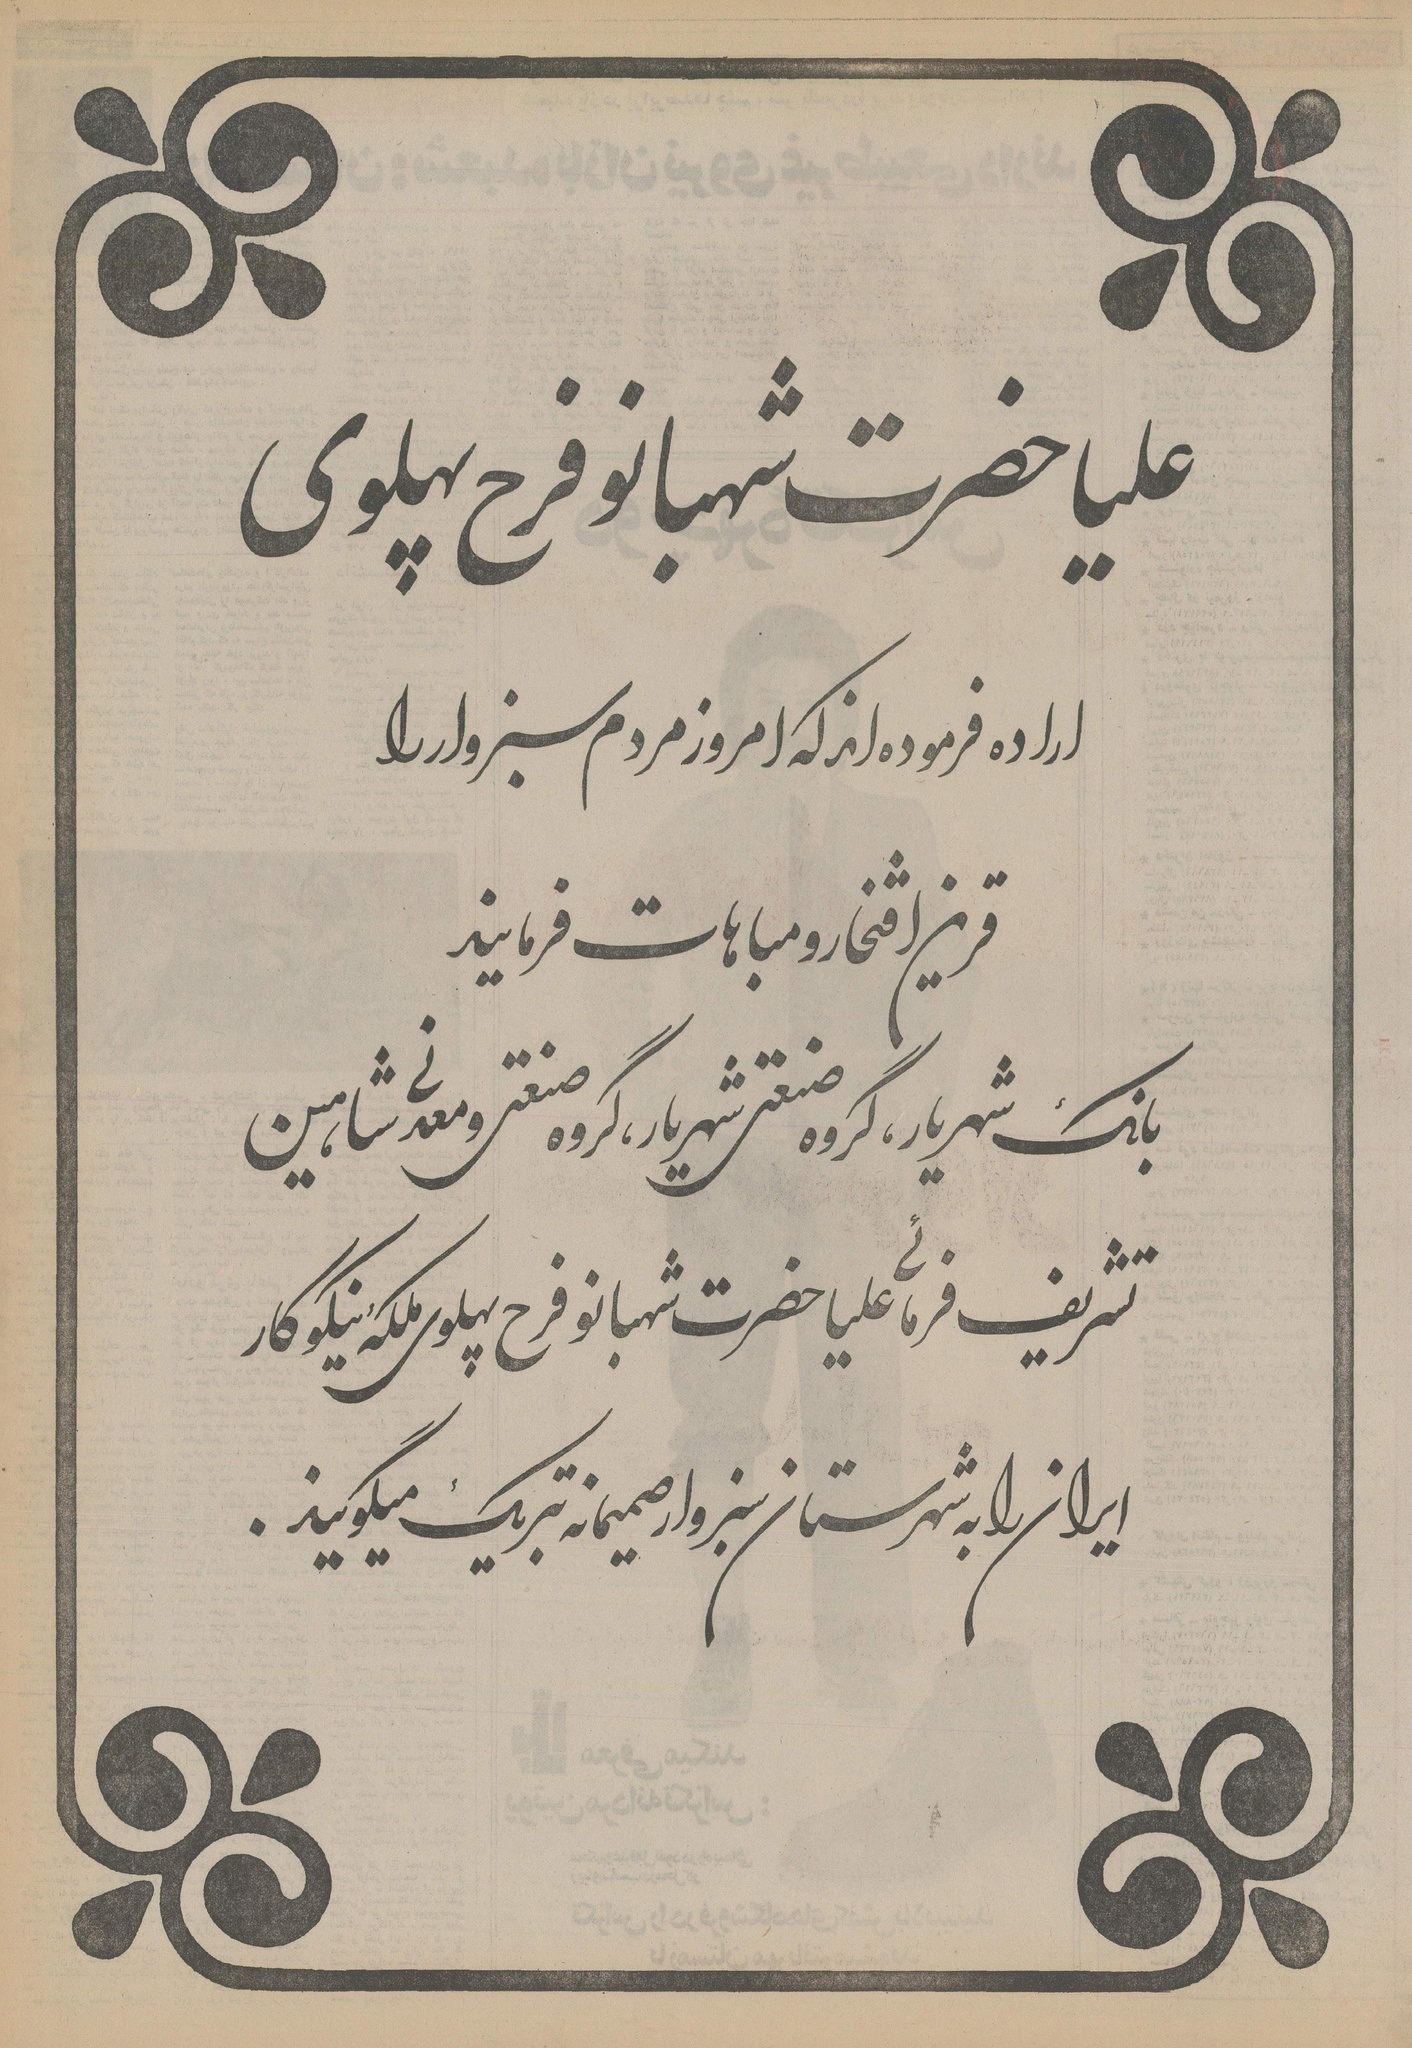 علیاحضرت شهبانو فرح پهلوی
اراده فرموده‌اند که امروز مردم سبزوار را
قرین افتخار و مباهات فرمایند
بانک شهریار، گروه صنعتی شهریار، گروه صنعتی و معدنی شاهین
تشریف فرمائی علیاحضرت شهبانو فرح پهلوی ملکهٔ نیکوکار
ایران را به شهرستان سبزوار صمیمانه تبریک میگویند.